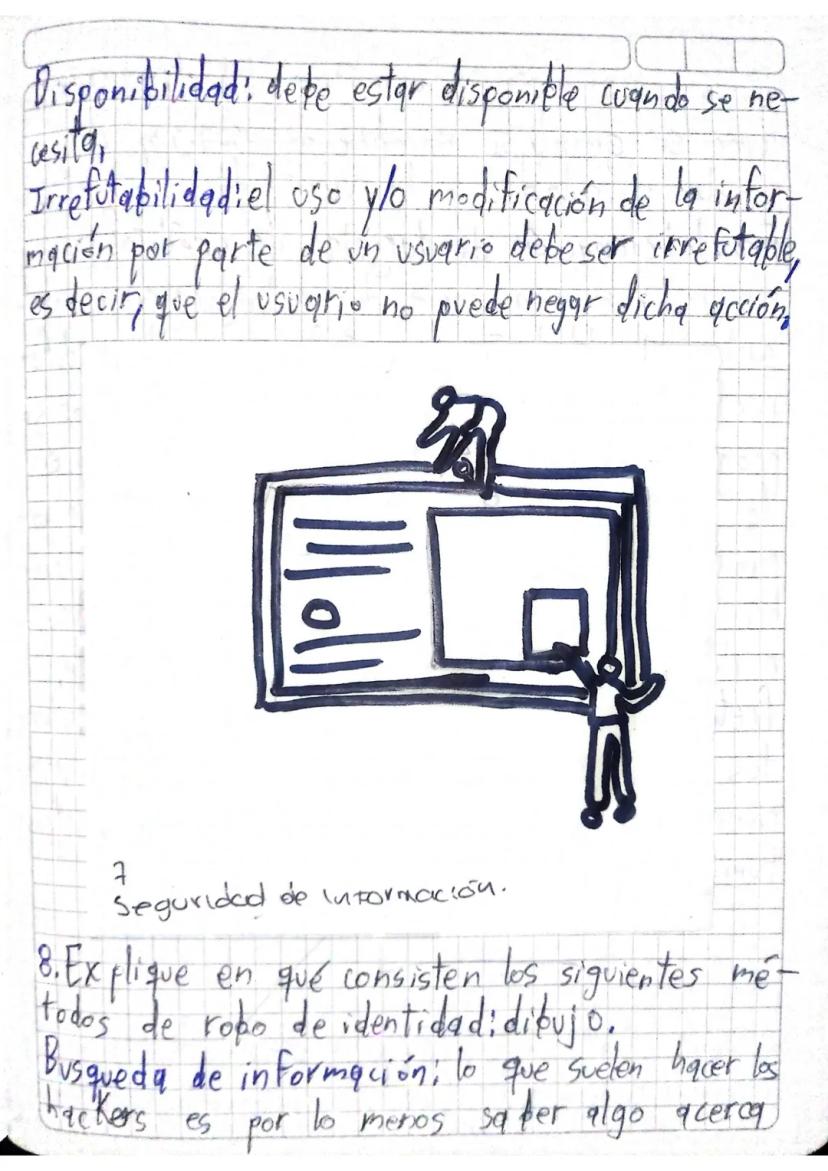 Disponibilidad: debe estar disponible cuando se ne-
cesita,
Irrefutabilidad: el uso y/o modificación de la infor-
mación por parte de un usuario debe ser irrefutable,
es decir, que el usuario no puede negar dicha acción.
7
Seguridad de información.
8. Explique en qué consisten los siguientes mé-
todos de robo de identidad: dibujo.
Busqueda de información: lo que suelen hacer los
hackers es por lo menos saber algo acerca